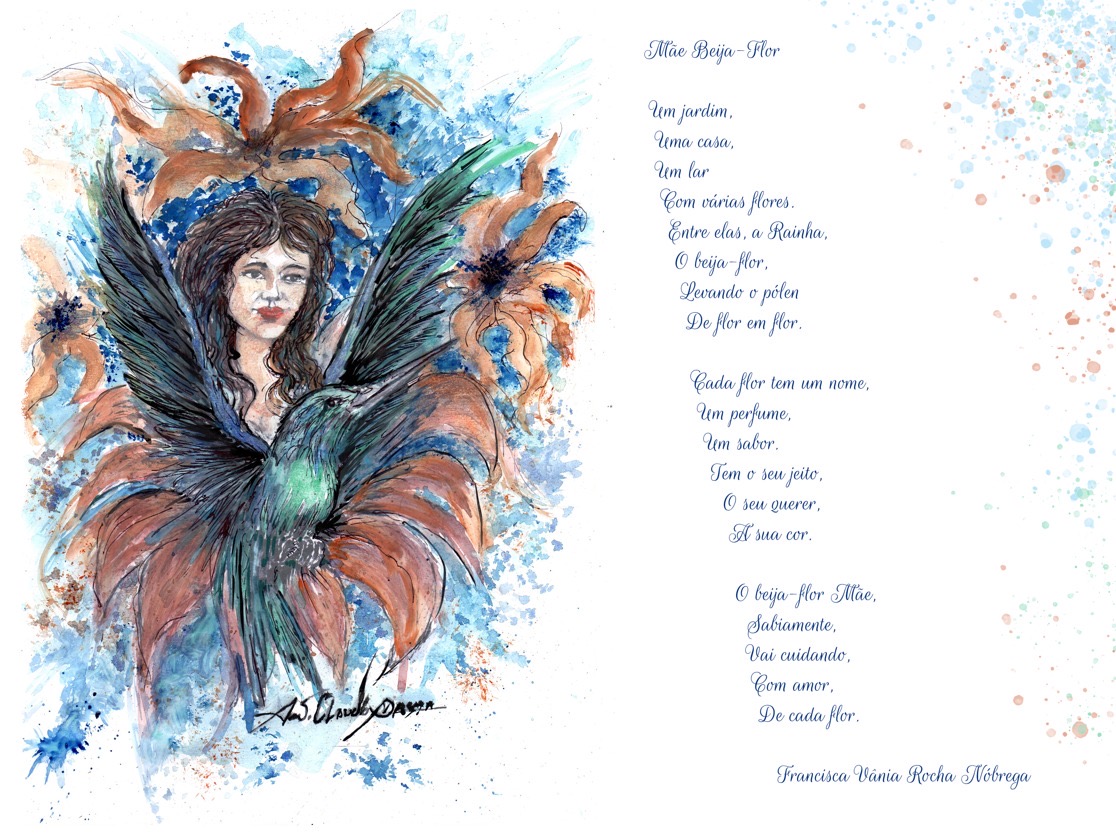 Mãe Beija-Flor
Um jardim,
Uma casa,
Um lar
Com várias flores.
Entre elas, a Rainha,
O beija-flor,
Levando o pólen
De flor em flor.
Cada flor tem um nome,
Um perfume,
Um sabor.
Tem o seu jeito,
O seu querer,
A sua cor.
O beija-flor Mãe,
Sabiamente,
Vai cuidando,
Com amor,
De cada flor.
Francisca Vânia Rocha Nóbrega